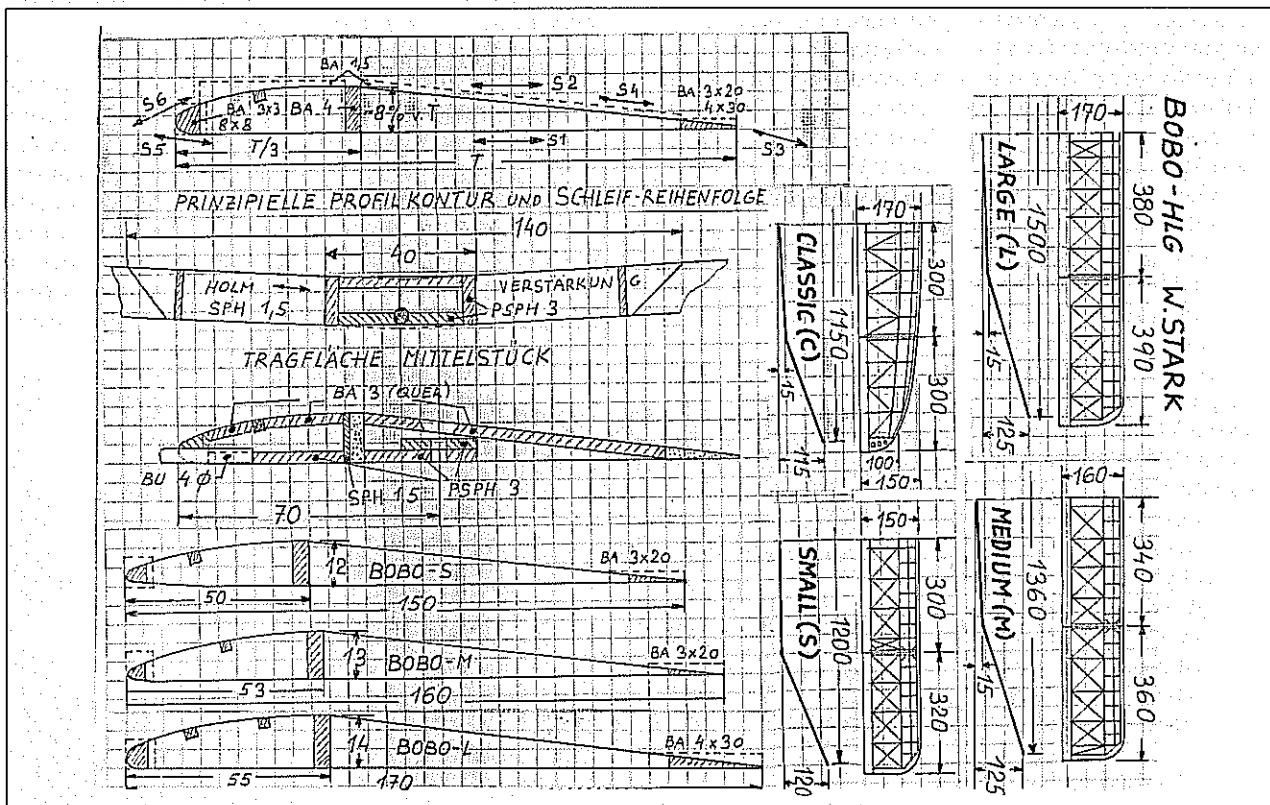 BA 1,5
S2
S4
BA 3x20
4x30
S6
BA 3x3
BA 4
8x8
8% v. T
S5
S1
S3
T/3
T
PRINZIPIELLE PROFILKONTUR UND SCHLEIF-REIHENFOLGE
140
40
HOLM
VERSTÄRKUNG
SPH 1,5
PSPH 3
TRAGFLÄCHE MITTELSTÜCK
BA 3 (QUER)
BU 4 Φ
SPH 1,5
PSPH 3
70
12
BOBO-S
BA 3x20
50
150
13
BOBO-M
BA 3x20
53
160
14
BOBO-L
BA 4x30
55
170
CLASSIC (C)
170
300
1150
300
15
115
100
150
SMALL (S)
150
300
1200
320
120
BOBO-HLG W.STARK
LARGE (L)
170
380
1500
390
15
125
MEDIUM (M)
160
340
1360
360
15
125